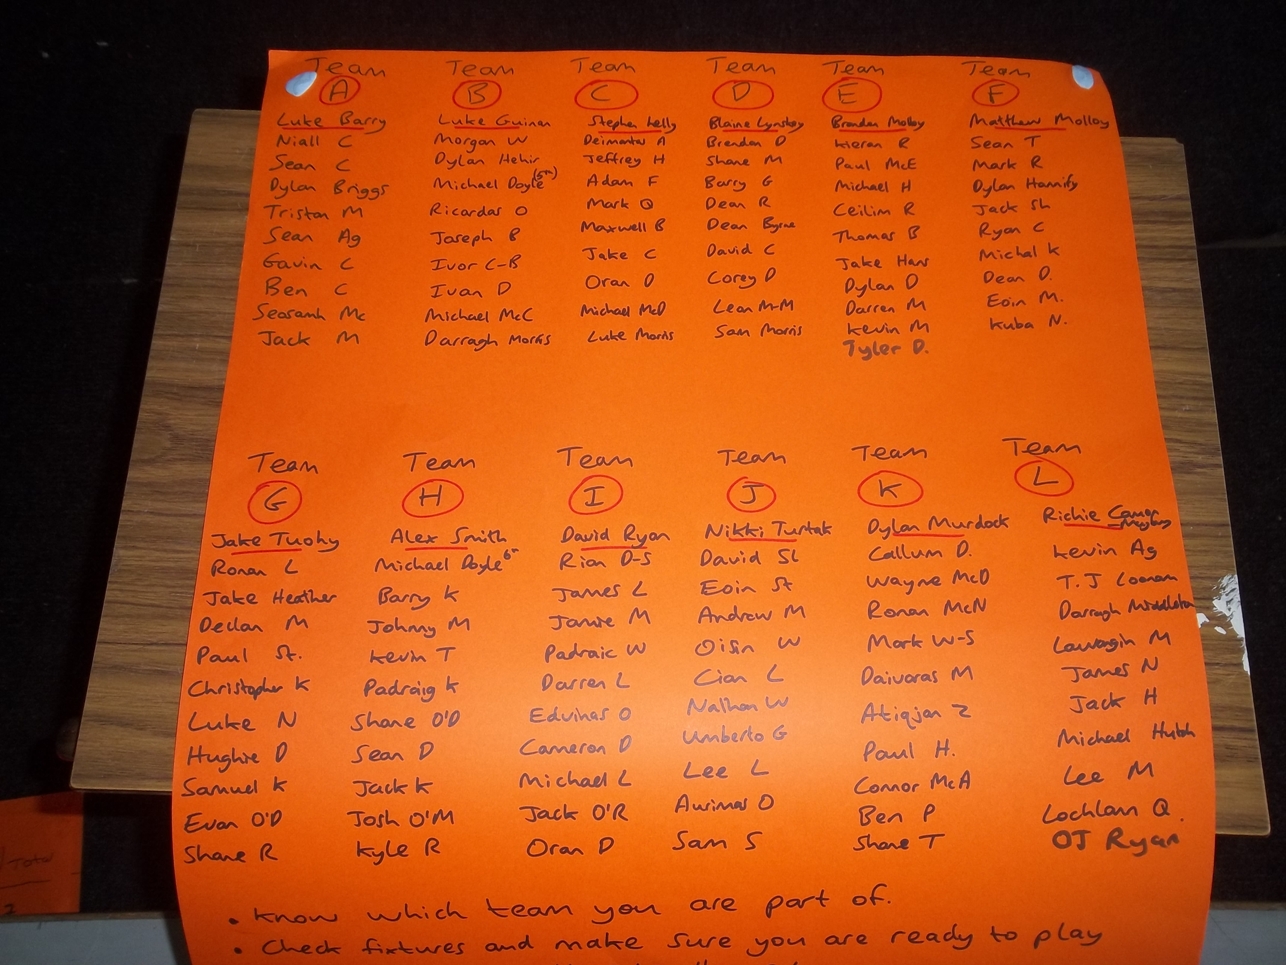 Team Team Team Team Team Team
A B C D E F
Luke Barry Luke Guinan Stephen Kelly Blaine Lynskey Brendan Molloy Matthew Molloy
Niall C Morgan W Deimantas A Brendan D Kieran R Sean T
Sean C Dylan Hehir Jeffrey H Shane M Paul McE Mark R
Dylan Briggs Michael Doyle (5th) Adam F Barry G Michael H Dylan Hannify
Tristan M Ricardas O Mark Q Dean R Ceilim R Jack Sh
Sean Ag Joseph B Maxwell B Dean Byrne Thomas B Ryan C
Gavin C Ivor C-B Jake C David C Jake Hans Michal K
Ben C Ivan D Oran D Corey D Dylan D Dean D.
Seosamh Mc Michael McC Michael McD Lean M-M Darren M Eoin M.
Jack M Darragh Morris Luke Morris Sam Morris Kevin M Kuba N.
Tyler D.
Team Team Team Team Team Team
G H I J K L
Jake Tuohy Alex Smith David Ryan Nikki Turtak Dylan Murdock Richie Comer
Ronan L Michael Doyle 6th Rian D-S David Sl Callum D. Kevin Ag
Jake Heather Barry K James L Eoin St Wayne McD T.J Loonam
Declan M Johnny M Jamie M Andrew M Ronan McN Darragh Middleton
Paul St. Kevin T Padraic W Oisin W Mark W-S M
Christopher K Padraig K Darren L Cian L Daivaras M James N
Luke N Shane O'D Edvinas O Nathan W Atiqjan Z Jack H
Hughie D Sean D Cameron D Umberto G Paul H. Michael Hutch
Samuel K Jack K Michael L Lee L Connor McA Lee M
Evan O'D Josh O'M Jack O'R Aurimas O Ben P Lochlann Q.
Shane R Kyle R Oran D Sam S Shane T OJ Ryan
• Know which team you are part of.
• Check fixtures and make sure you are ready to play
Total